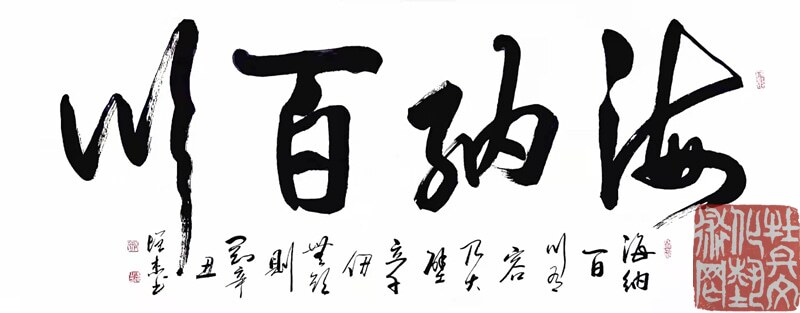 海纳百川
海纳百川有容乃大壁立千仞無欲則剛辛丑